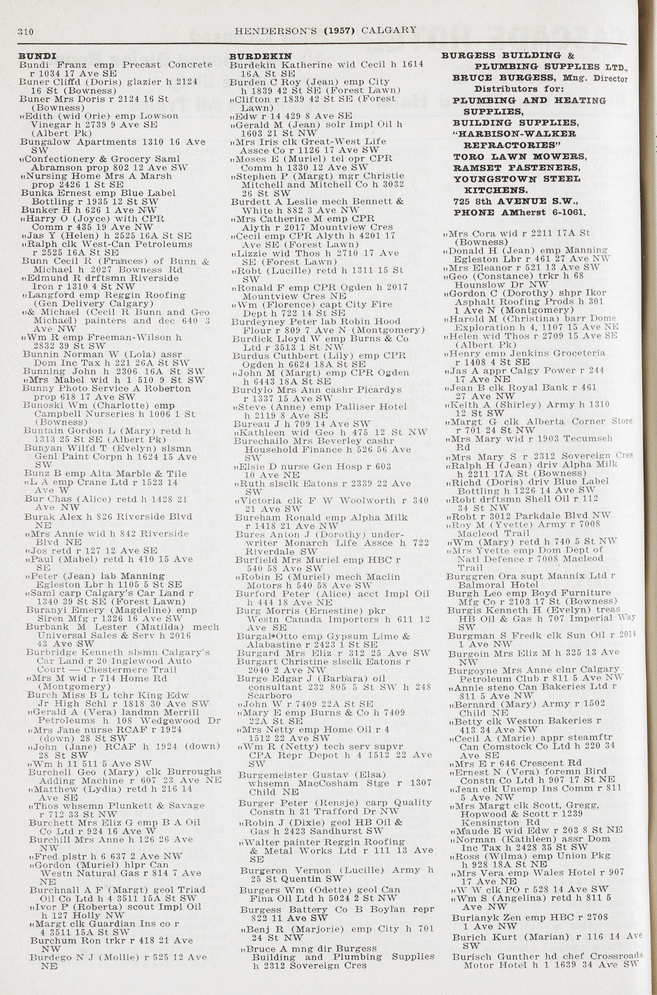 310
HENDERSON'S (1957) CALGARY
BUNDI
Bundi Franz emp Precast Concrete
r 1034 17 Ave SE
Buner Cliffd (Doris) glazier h 2124
16 St (Bowness)
Buner Mrs Doris r 2124 16 St
(Bowness)
„Edith (wid Orie) emp Lowson
Vinegar h 2739 9 Ave SE
(Albert Pk)
Bungalow Apartments 1310 16 Ave
SW
„Confectionery & Grocery Saml
Abramson prop 802 12 Ave SW
„Nursing Home Mrs A Marsh
prop 2426 1 St SE
Bunka Ernest emp Blue Label
Bottling r 1935 12 St SW
Bunker H h 626 1 Ave NW
„Harry O (Joyce) with CPR
Comm r 435 19 Ave NW
„Jas Y (Helen) h 2525 16A St SE
„Ralph clk West-Can Petroleums
r 2525 16A St SE
Bunn Cecil R (Frances) of Bunn &
Michael h 2027 Bowness Rd
„Edmund R drftsmn Riverside
Iron r 1310 4 St NW
„Langford emp Reggin Roofing
(Gen Delivery Calgary)
„& Michael (Cecil R Bunn and Geo
Michael) painters and dec 640 3
Ave NW
„Wm R emp Freeman-Wilson h
2832 39 St SW
Bunnin Norman W (Lola) assr
Dom Inc Tax h 221 26A St SW
Bunning John h 2306 16A St SW
„Mrs Mabel wid h 1 510 9 St SW
Bunny Photo Service A Roberton
prop 618 17 Ave SW
Bunoski Wm (Charlotte) emp
Campbell Nurseries h 1006 1 St
(Bowness)
Buntain Gordon L (Mary) retd h
1313 25 St SE (Albert Pk)
Bunyan Wilfd T (Evelyn) slsmn
Genl Paint Corpn h 1624 15 Ave
SW
Bunz B emp Alta Marble & Tile
„L A emp Crane Ltd r 1523 14
Ave W
Bur Chas (Alice) retd h 1428 21
Ave NW
Burak Alex h 826 Riverside Blvd
NE
„Mrs Annie wid h 842 Riverside
Blvd NE
„Jos retd r 127 12 Ave SE
„Paul (Mabel) retd h 410 15 Ave
SE
„Peter (Jean) lab Manning
Egleston Lbr h 1105 5 St SE
„Saml carp Calgary's Car Land r
1340 39 St SE (Forest Lawn)
Buranyi Emery (Magdeline) emp
Siren Mfg r 1326 16 Ave SW
Burbank M Lester (Matilda) mech
Universal Sales & Serv h 2016
43 Ave SW
Burbridge Kenneth slsmn Calgary's
Car Land r 20 Inglewood Auto
Court — Chestermere Trail
„Mrs M wid r 714 Home Rd
(Montgomery)
Burch Miss B L tchr King Edw
Jr High Schl r 1818 30 Ave SW
„Gerald A (Vera) landmn Merrill
Petroleums h 108 Wedgewood Dr
„Mrs Jane nurse RCAF r 1924
(down) 28 St SW
„John (Jane) RCAF h 1924 (down)
28 St SW
„Wm h 11 511 5 Ave SW
Burchell Geo (Mary) clk Burroughs
Adding Machine r 607 23 Ave NE
„Matthew (Lydia) retd h 216 14
Ave SE
„Thos whsemn Plunkett & Savage
r 712 33 St NW
Burchett Mrs Eliz G emp B A Oil
Co Ltd r 924 16 Ave W
Burchill Mrs Anne h 126 26 Ave
NW
„Fred plstr h 6 637 2 Ave NW
„Gordon (Muriel) hlpr Can
Westn Natural Gas r 814 7 Ave
NE
Burchnall A F (Margt) geol Triad
Oil Co Ltd h 4 3511 15A St SW
„Ivor P (Roberta) scout Impl Oil
h 127 Holly NW
„Margt clk Guardian Ins co r
4 3511 15A St SW
Burchum Ron trkr r 418 21 Ave
NW
Burdego N J (Mollie) r 525 12 Ave
NE
BURDEKIN
Burdekin Katherine wid Cecil h 1614
16A St SE
Burden C Roy (Jean) emp City
h 1839 42 St SE (Forest Lawn)
„Clifton r 1839 42 St SE (Forest
Lawn)
„Edw r 14 429 8 Ave SE
„Gerald M (Jean) solr Impl Oil h
1603 21 St NW
„Mrs Iris clk Great-West Life
Assce Co r 1126 17 Ave SW
„Moses E (Muriel) tel opr CPR
Comm h 1330 12 Ave SW
„Stephen P (Margt) mgr Christie
Mitchell and Mitchell Co h 3032
26 St SW
Burdett A Leslie mech Bennett &
White h 882 3 Ave NW
„Mrs Catherine M emp CPR
Alyth r 2017 Mountview Cres
„Cecil emp CPR Alyth h 4201 17
Ave SE (Forest Lawn)
„Lizzie wid Thos h 2710 17 Ave
SE (Forest Lawn)
„Robt (Lucille) retd h 1311 15 St
SW
„Ronald F emp CPR Ogden h 2017
Mountview Cres NE
„Wm (Florence) capt City Fire
Dept h 722 14 St SE
Burdeyney Peter lab Robin Hood
Flour r 809 7 Ave N (Montgomery)
Burdick Lloyd W emp Burns & Co
Ltd r 3513 1 St NW
Burdus Cuthbert (Lily) emp CPR
Ogden h 6624 18A St SE
„John M (Margt) emp CPR Ogden
h 6443 18A St SE
Burdylo Mrs Ann cashr Picardys
r 1337 15 Ave SW
„Steve (Anne) emp Palliser Hotel
h 2119 8 Ave SE
Bureau J h 709 14 Ave SW
„Kathleen wid Geo h 475 12 St NW
Burechailo Mrs Beverley cashr
Household Finance h 526 56 Ave
SW
„Elsie D nurse Gen Hosp r 603
10 Ave NE
„Ruth slsclk Eatons r 2339 22 Ave
SW
„Victoria clk F W Woolworth r 340
21 Ave SW
Bureham Ronald emp Alpha Milk
r 1418 21 Ave NW
Bures Anton J (Dorothy) under-
writer Monarch Life Assce h 722
Riverdale SW
Burfield Mrs Muriel emp HBC r
540 58 Ave SW
„Robin E (Muriel) mech Maclin
Motors h 540 58 Ave SW
Burford Peter (Alice) acct Impl Oil
h 444 18 Ave NE
Burg Morris (Ernestine) pkr
Westn Canada Importers h 611 12
Ave SE
Burgal Otto emp Gypsum Lime &
Alabastine r 2423 1 St SE
Burgard Mrs Eliz r 312 25 Ave SW
Burgart Christine slsclk Eatons r
2040 2 Ave NW
Burge Edgar J (Barbara) oil
consultant 232 805 5 St SW h 248
Scarboro
„John W r 7409 22A St SE
„Mary E emp Burns & Co h 7409
22A St SE
„Mrs Netty emp Home Oil r 4
1512 22 Ave SW
„Wm R (Netty) tech serv supvr
CPA Repr Depot h 4 1512 22 Ave
SW
Burgemeister Gustav (Elsa)
whsemn MacCosham Stge r 1307
Child NE
Burger Peter (Rensje) carp Quality
Constn h 31 Trafford Dr NW
„Robin J (Dixie) geol HB Oil &
Gas h 2423 Sandhurst SW
„Walter painter Reggin Roofing
& Metal Works Ltd r 111 13 Ave
SE
Burgeron Vernon (Lucille) Army h
25 St Quentin SW
Burgers Wm (Odette) geol Can
Fina Oil Ltd h 5024 2 St NW
Burgess Battery Co B Boylan repr
822 11 Ave SW
„Benj R (Marjorie) emp City h 701
24 St NW
„Bruce A mng dir Burgess
Building and Plumbing Supplies
h 2312 Sovereign Cres
BURGESS BUILDING &
PLUMBING SUPPLIES LTD.,
BRUCE BURGESS, Mng. Director
Distributors for:
PLUMBING AND HEATING
SUPPLIES,
BUILDING SUPPLIES,
"HARBISON-WALKER
REFRACTORIES"
TORO LAWN MOWERS,
RAMSET FASTENERS,
YOUNGSTOWN STEEL
KITCHENS.
725 8th AVENUE S.W.,
PHONE AMherst 6-1061.
„Mrs Cora wid r 2211 17A St
(Bowness)
„Donald H (Jean) emp Manning
Egleston Lbr r 461 27 Ave NW
„Mrs Eleanor r 521 13 Ave SW
„Geo (Constance) trkr h 68
Hounslow Dr NW
„Gordon C (Dorothy) shpr Ikor
Asphalt Roofing Prods h 301
1 Ave N (Montgomery)
„Harold M (Christina) barr Dome
Exploration h 4, 1107 15 Ave NE
„Helen wid Thos r 2709 15 Ave SE
(Albert Pk)
„Henry emp Jenkins Groceteria
r 1408 4 St SE
„Jas A appr Calgy Power r 244
17 Ave NE
„Jean B clk Royal Bank r 461
27 Ave NW
„Keith A (Shirley) Army h 1310
12 St SW
„Margt G clk Alberta Corner Store
r 701 24 St NW
„Mrs Mary wid r 1903 Tecumseh
Rd
„Mrs Mary S r 2312 Sovereign Cres
„Ralph H (Jean) driv Alpha Milk
h 2211 17A St (Bowness)
„Richd (Doris) driv Blue Label
Bottling h 1226 14 Ave SW
„Robt drftsmn Shell Oil r 112
34 St NW
„Robt r 3012 Parkdale Blvd NW
„Roy M (Yvette) Army r 7008
Macleod Trail
„Wm (Mary) retd h 740 5 St NW
„Mrs Yvette emp Dom Dept of
Natl Defence r 7008 Macleod
Trail
Burggren Ora supt Mannix Ltd r
Balmoral Hotel
Burgh Leo emp Boyd Furniture
Mfg Co r 2103 17 St (Bowness)
Burgis Kenneth H (Evelyn) treas
HB Oil & Gas h 707 Imperial Way
SW
Burgman S Fredk clk Sun Oil r 2014
1 Ave NW
Burgoin Mrs Eliz M h 325 13 Ave
NW
Burgoyne Mrs Anne clnr Calgary
Petroleum Club r 811 5 Ave NW
„Annie steno Can Bakeries Ltd r
811 5 Ave NW
„Bernard (Mary) Army r 1502
Child NE
„Betty clk Weston Bakeries r
413 34 Ave NW
„Cecil A (Marie) appr steamftr
Can Comstock Co Ltd h 220 34
Ave SE
„Mrs E r 646 Crescent Rd
„Ernest N (Vera) foremn Bird
Constn Co Ltd h 907 17 St NE
„Jean clk Unemp Ins Comm r 811
5 Ave NW
„Mrs Margt clk Scott, Gregg,
Hopwood & Scott r 1239
Kensington Rd
„Maude E wid Edw r 203 8 St NE
„Norman (Kathleen) assr Dom
Inc Tax h 2428 35 St SW
„Ross (Wilma) emp Union Pkg
h 928 18A St NE
„Mrs Vera emp Wales Hotel r 907
17 Ave NE
„W W clk PO r 528 14 Ave SW
„Wm S (Angelina) retd h 811 5
Ave NW
Burianyk Zen emp HBC r 2708
1 Ave NW
Burich Kurt (Marian) r 116 14 Ave
SW
Burisch Gunther hd chef Crossroads
Motor Hotel h 1 1639 34 Ave SW